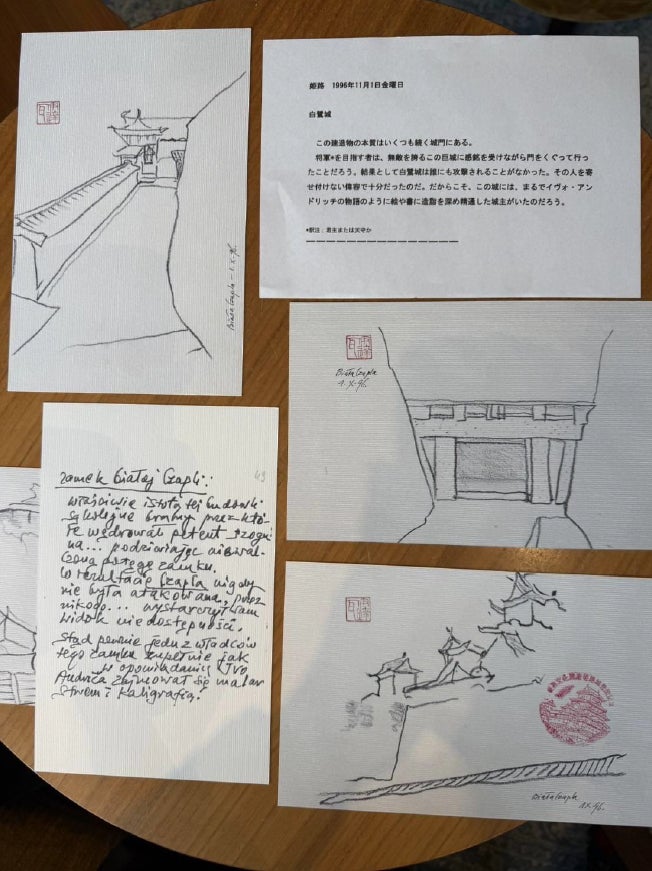 Biała Czapla – 1.X-96.
姫路 1996年11月1日金曜日
白鷺城
この建造物の本質はいくつも続く城門にある。
将軍*を目指す者は、無敵を誇るこの巨城に感銘を受けながら門をくぐって行っ
たことだろう。結果として白鷺城は誰にも攻撃されることがなかった。その人を寄
せ付けない偉容で十分だったのだ。だからこそ、この城には、まるでイヴォ・アン
ドリッチの物語のように絵や書に造詣を深め精通した城主がいたのだろう。
*訳注：君主または天守か
Biała Czapla
1.X-96.
zamek Białej Czapli: 49
właściwie istotą tej budowli
są kolejne bramy przez któ-
re wędrował petent szogu-
na... podziwiając
potęgę zamku.
W rezultacie Czapla nigdy
nie była atakowana, przez
nikogo... wystarczył sam
widok niedostępności.
Stąd pewnie jeden z władców
tego zamku zupełnie jak
w opowiadaniu Ivo
Andrića zajmował się malar
stwem i kaligrafią!
Biała Czapla
1X-96.